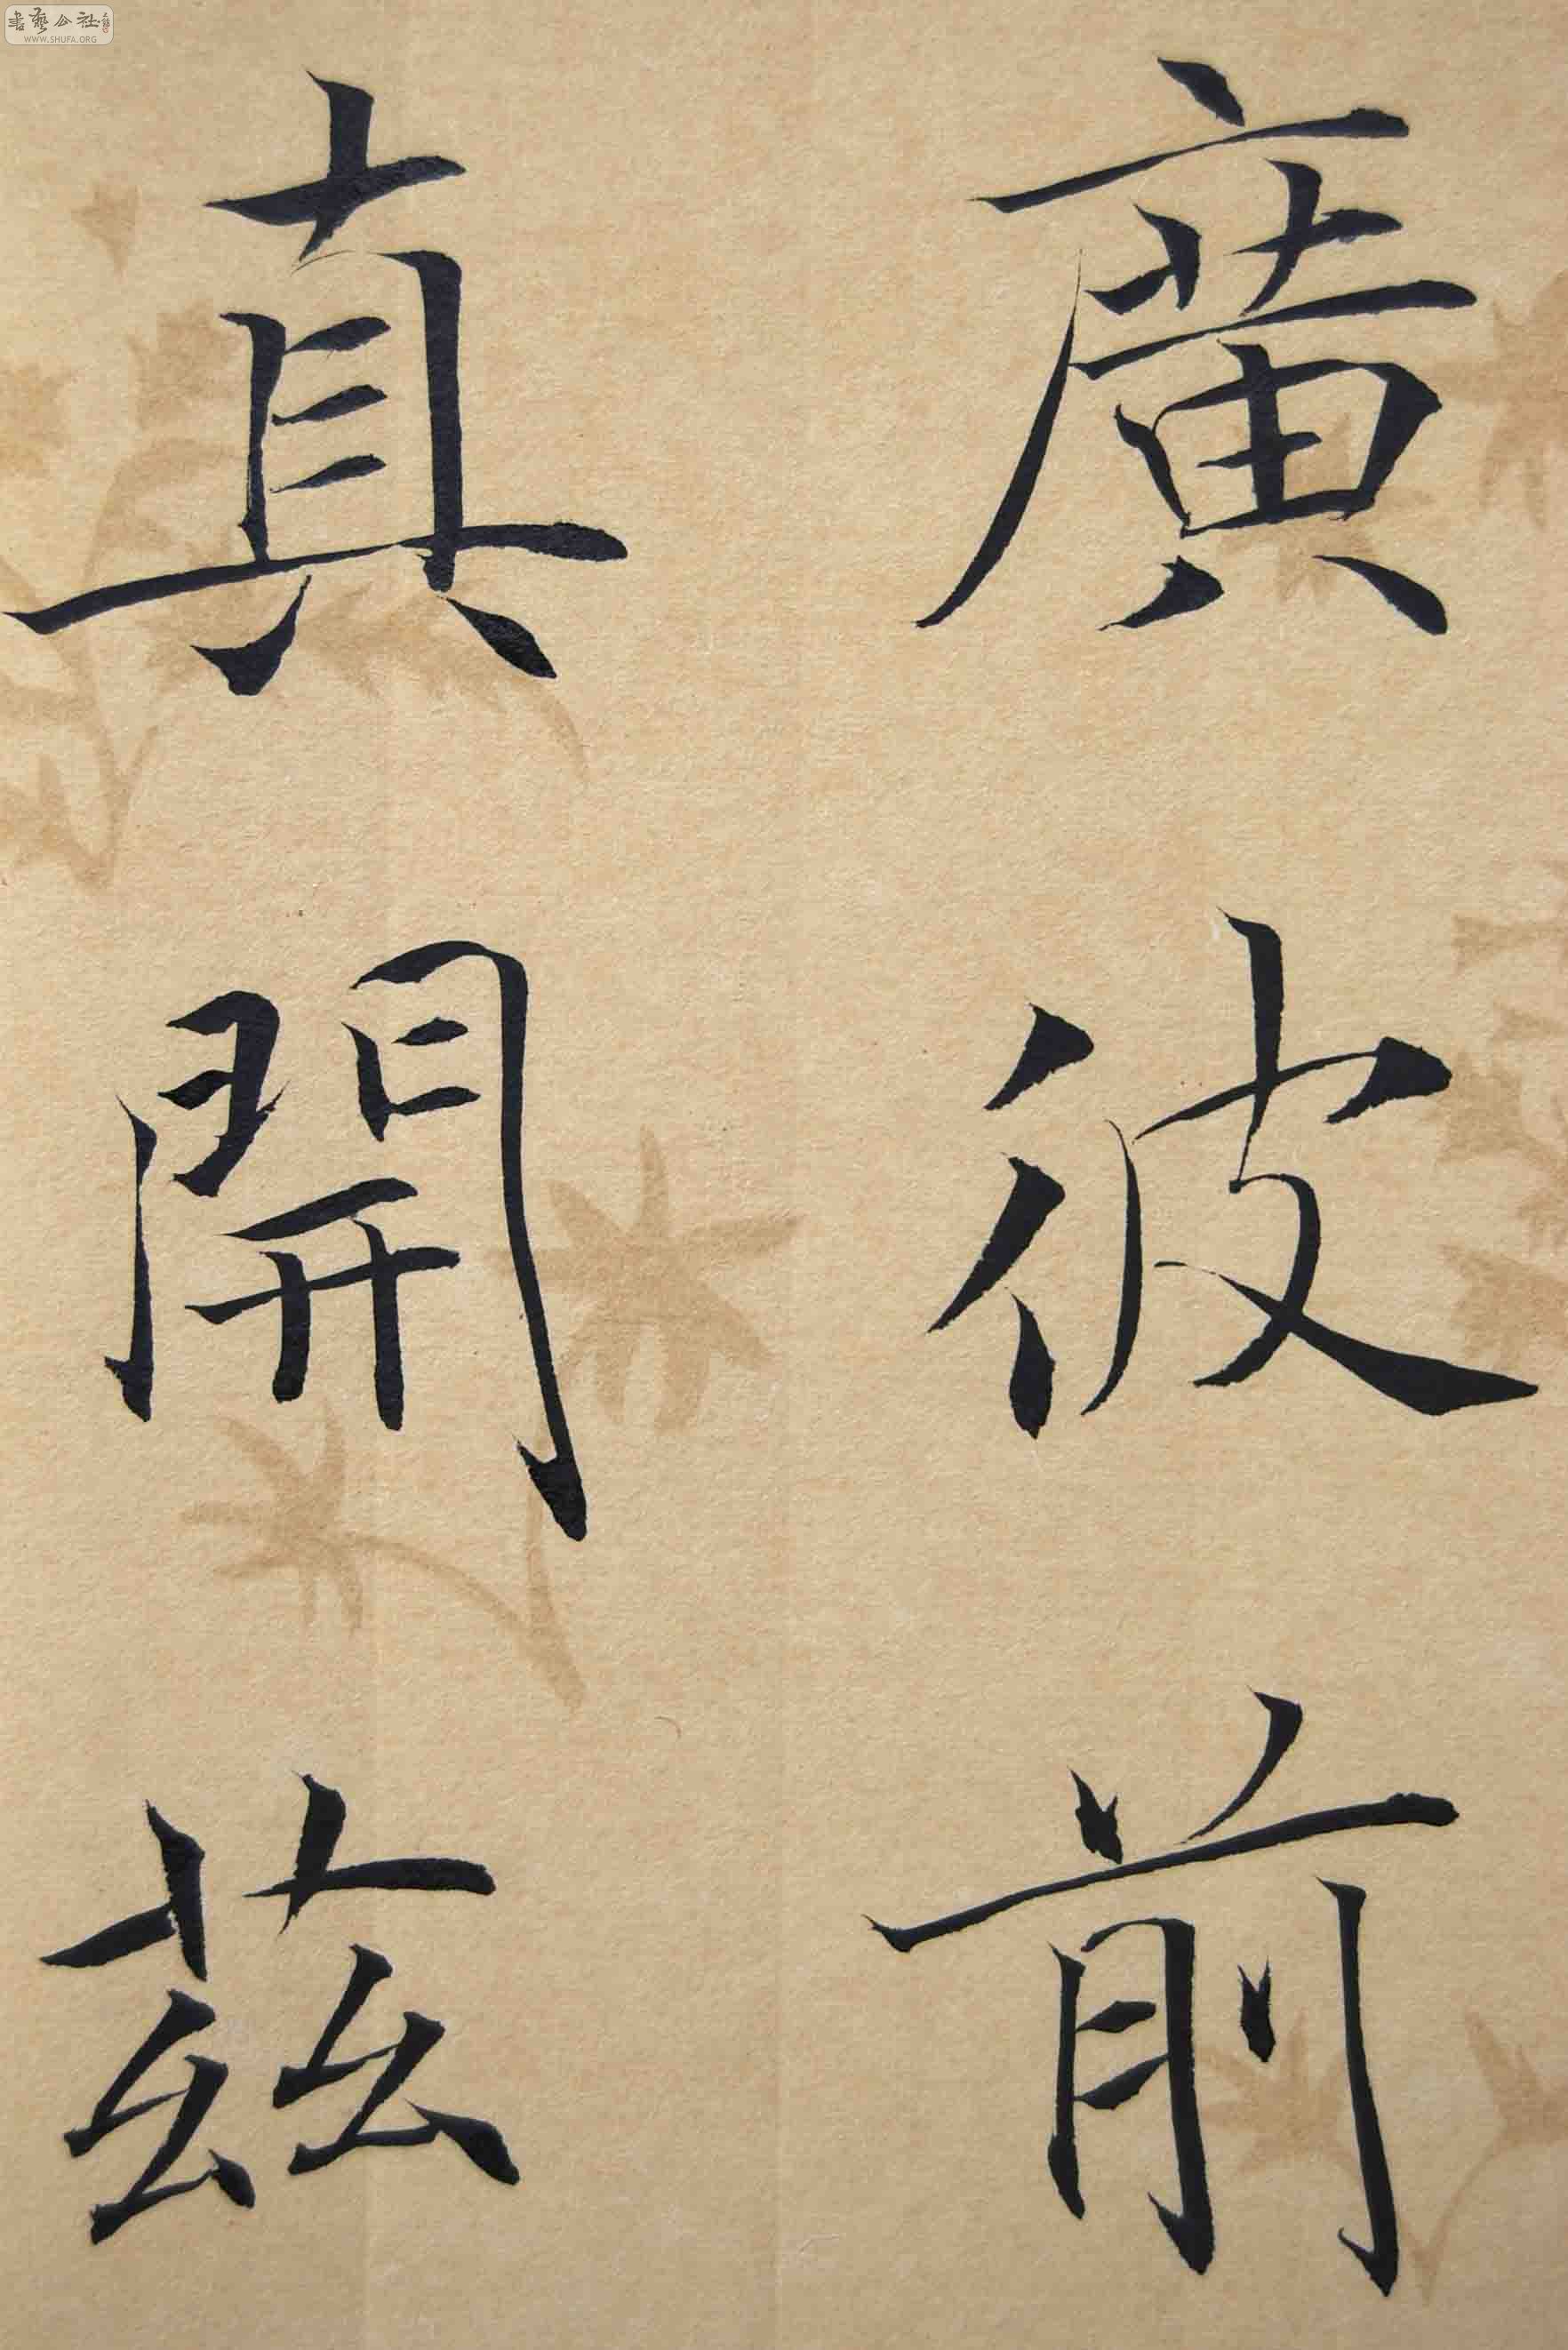 廣彼前
真開茲
書藝公社
WWW.SHUFA.ORG